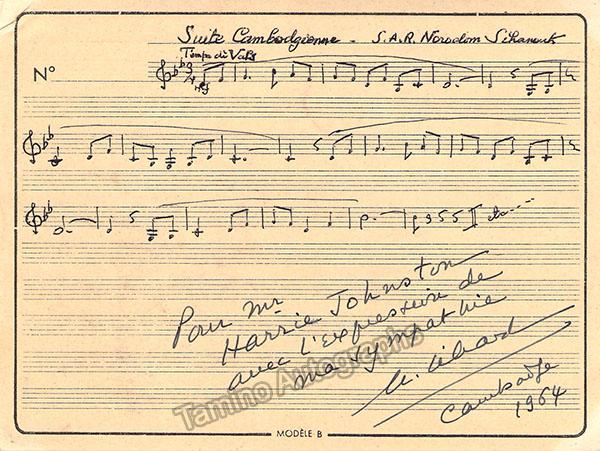 Suite Cambodgienne - S.A.R. Norodom Sihanouk
Tempo di Vals
N°
Pour Mr
Harrie Johnston
avec l'expression de
ma sympathie
Cambodge
1964
Tamino Autographs
MODÈLE B